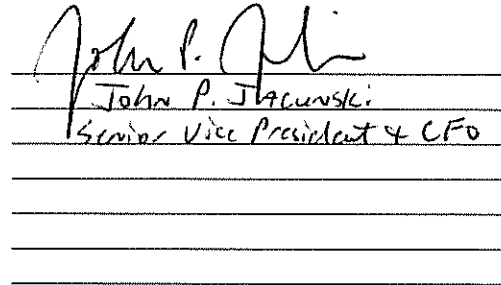 John P.
John P. Jacunski
Senior Vice President & CFO